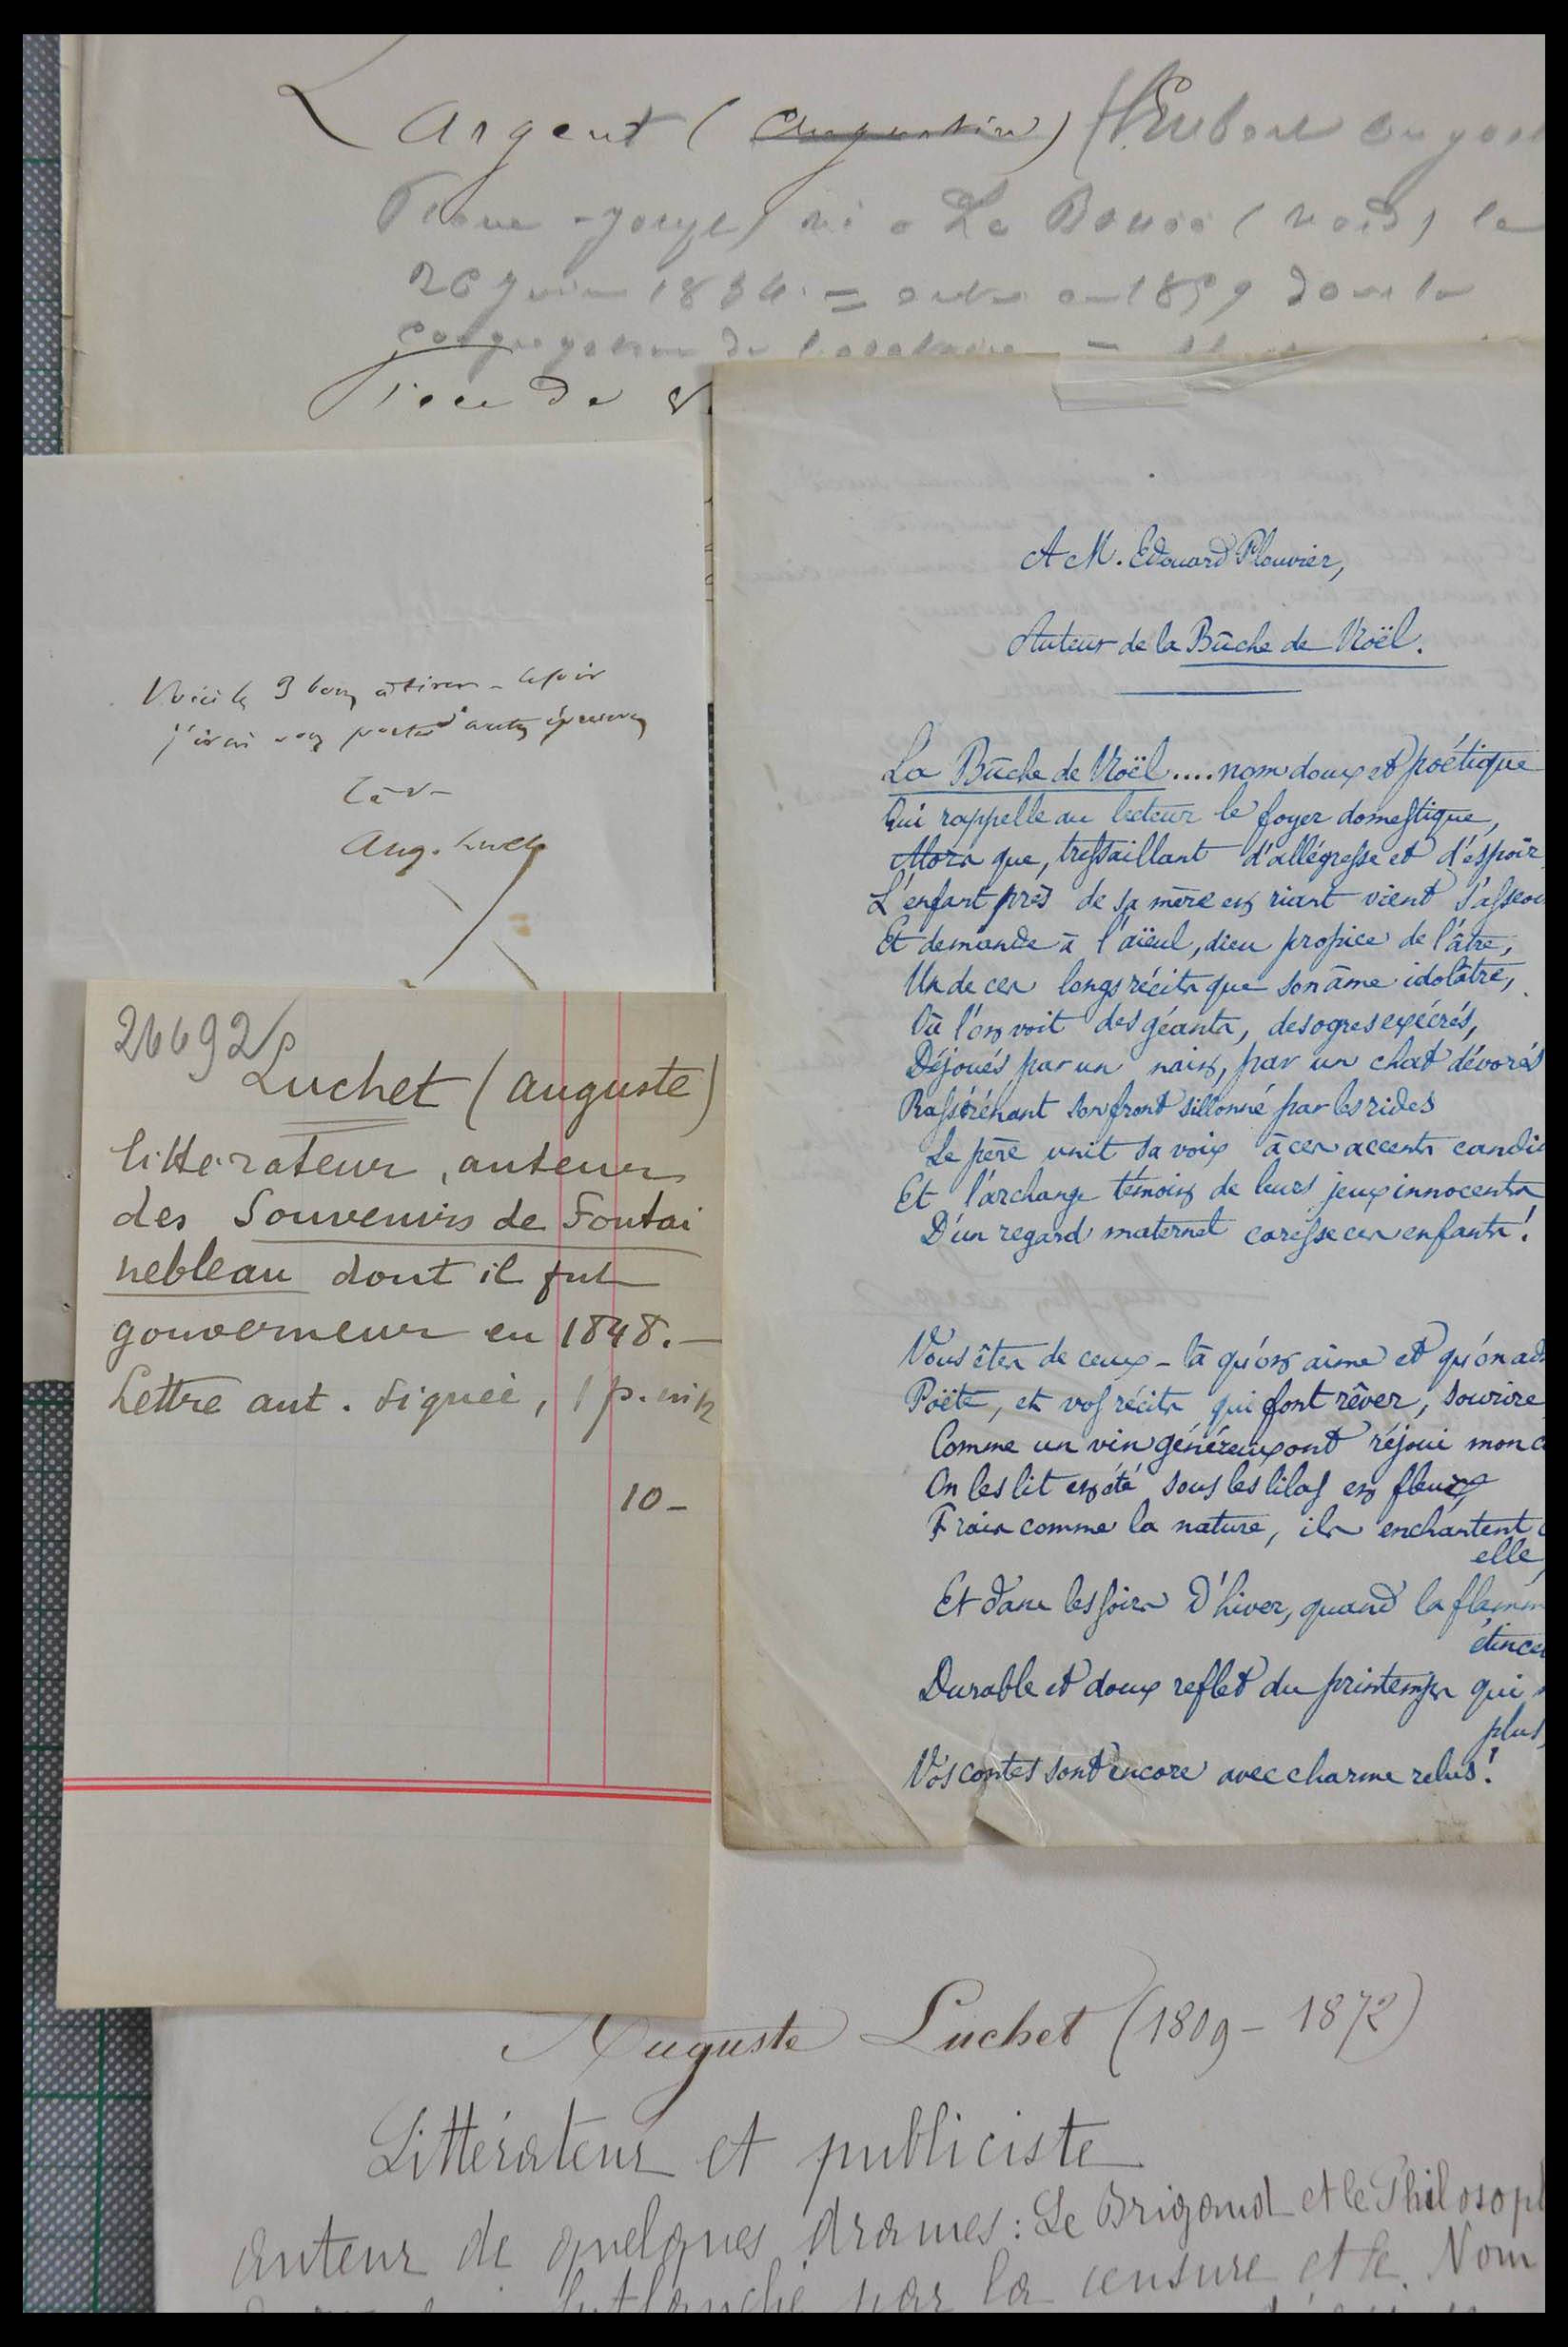 Largent (Augustin) (
né à
26 juin 1834 = entre en 1859 dans la
congrégation de l'oratoire -
Pièce de
Voici les 3 bons à tirer - ce soir
j'irai vous porter d'autres épreuves
Aug. Luchet
26692
Luchet (Auguste)
littérateur, auteur
des Souvenirs de Fontai
nebleau dont il fut
gouverneur en 1848. —
Lettre aut. signée, 1 p.
10 -
A M. Edouard Plouvier,
Auteur de la Bûche de Noël.
La Bûche de Noël .... nom doux et poétique
Qui rappelle au lecteur le foyer domestique,
Alors que, tressaillant d'allégresse et d'espoir
L'enfant près de sa mère en riant vient s'asseoi
Et demande à l'aïeul, dieu propice de l'âtre,
Un de ces longs récits que son âme idolâtre,
Où l'on voit des géants, des ogres exécrés,
Déjoués par un nain, par un chat dévorés
Rassérénant son front sillonné par les rides
Le père unit sa voix à ces accents candi
Et l'archange témoin de leurs jeux innocents
D'un regard maternel caresse ces enfants !
Vous êtes de ceux-là qu'on aime et qu'on ad
Poëte, et vos récits qui font rêver, sourire
Comme un vin généreux ont réjoui mon c
On les lit en été sous les lilas en fleurs
Frais comme la nature, ils enchantent
elle,
Et dans les soirs d'hiver, quand la flamm
étince
Durable et doux reflet du printemps qui
plus,
Vos contes sont encore avec charme relus !
Auguste Luchet (1809 - 1872)
Littérateur et publiciste
auteur de quelques drames : Le Brigand et le Philosoph
par la censure et le. Nom